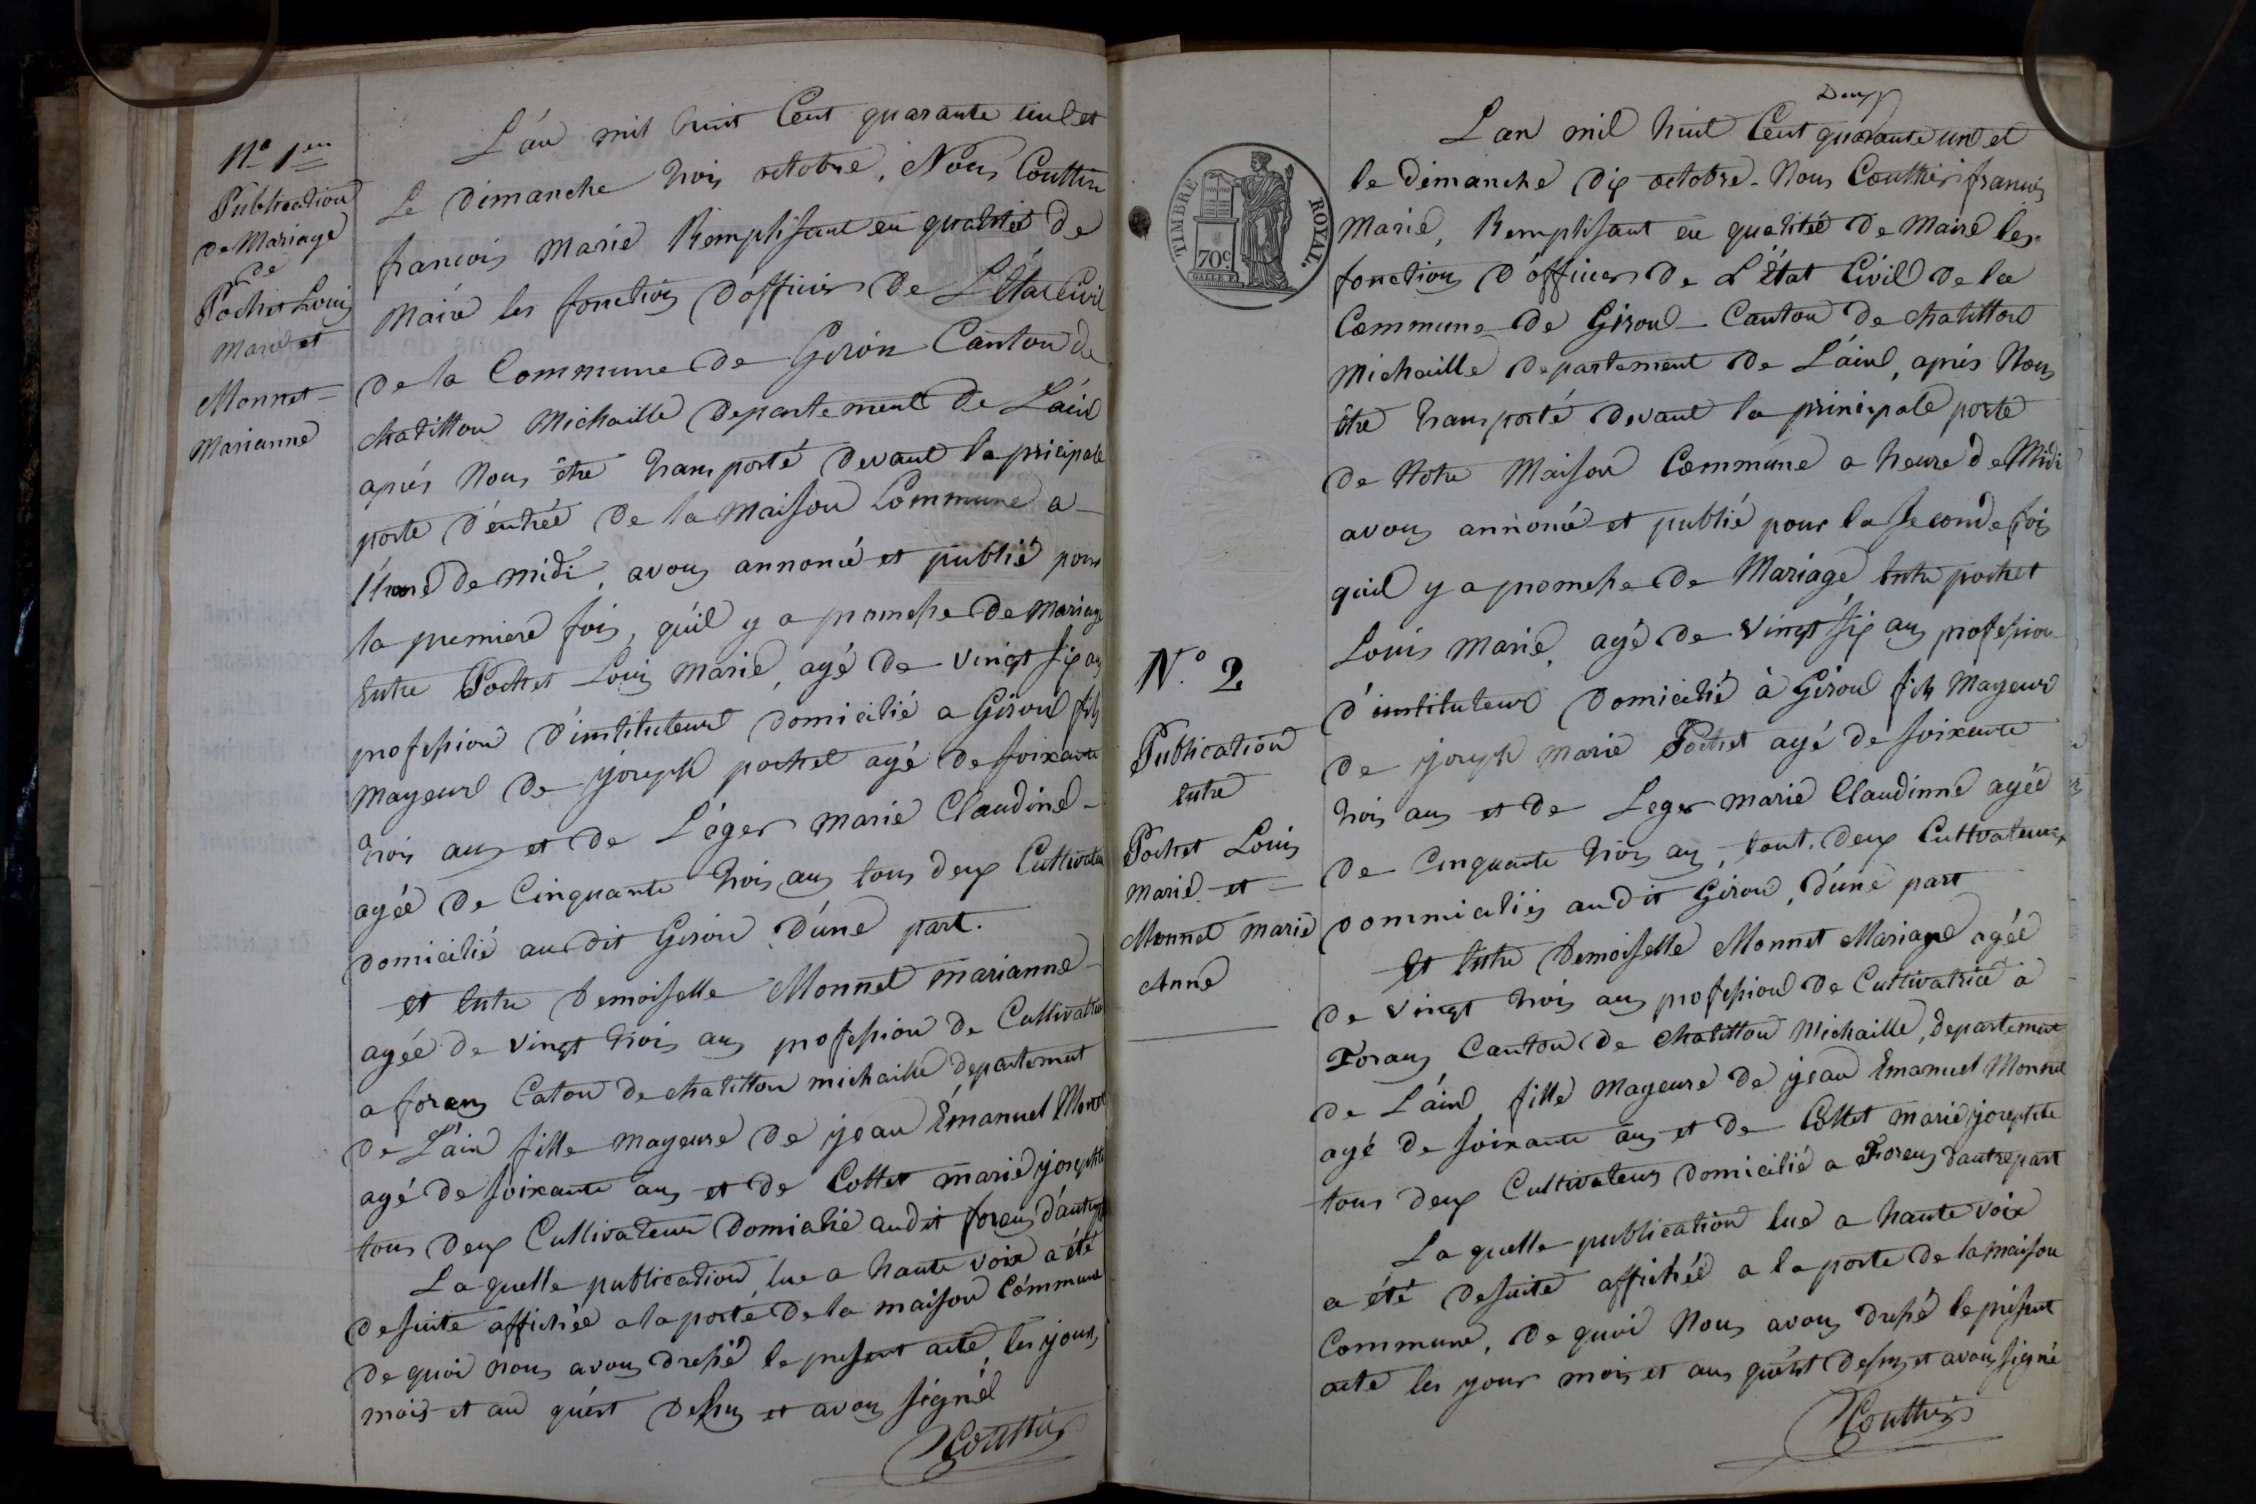 N.o 1er
Publication
de Mariage
de
Pochet Louis
Marie et
Monnet
Marianne
L'an mil huit Cent quarante un et
Le dimanche trois octobre, Nous Couttier
francois Marie Remplissant en qualité de
Maire les fonctions d'officier de L'État Civil
de la Commune de Giron Canton de
chatillon Michaille departement de L'ain
aprés Nous être transporté devant la pricipale
porte d'entrée de la Maison Commune a
l'heure de midi, avons annoncé et publié pour
la premiere fois, qu'il y a promesse de mariage
entre Pochet Louis Marie, agé de vingt six ans
profession d'instituteur domicilié a Giron fils
mayeur de joseph pochet agé de soixante
trois ans et de Léger marie Claudine
agée de Cinquante trois ans tous deux Cultivateurs
domicilié audit Giron d'une part.
et entre demoiselle Monnet marianne
agée de vingt trois ans profession de Cultivatrice
a forens Caton de chatillon michaille departement
de L'ain fille mayeure de jean Émanuel Monnet
agé de soixante ans et de Collet marie josephte
tous deux Cultivateurs domicilié audit forens d'autre part
La quelle publication lue a haute voix a été
desuite affichée a la porte de la maison Commune
de quoi nous avons dressé le present acte les jours,
mois et an qu'est dessus et avons signé
Couttier
TIMBRE ROYAL
70c
N.o 2
Publication
entre
Pochet Louis
marie et
Monnet marie
Anne
Deux
L'an mil huit Cent quarante un et
le dimanche dix octobre. Nous Couttier francois
Marie, Remplissant en qualitée de Maire les
fonctions d'officier de L'État Civil de la
Commune de Giron Canton de chatillon
Michaille departement de L'ain, aprés Nous
être transporté devant la principale porte
de Notre Maison Commune a heure de Midi
avons annoncé et publié pour la seconde fois
quil y a promesse de Mariage entre pochet
Louis Marie, agé de vingt six ans profession
d'instituteur domicilié à Giron fils Mayeur
de joseph marie Pochet agé de soixante
trois ans et de Leger marie Claudinne agée
de Cinquante trois ans, tout deux Cultivateurs
dommiciliés audit Giron, d'une part
et entre demoiselle Monnet Mariane agée
de vingt trois ans profession de Cultivatrice à
Forens Canton de chatillon Michaille, departement
de L'ain, fille mayeure de jean Emanuel Monnet
agé de soixante ans et de Collet marie josephte
tous deux Cultivateurs domicilié a Forens d'autre part
La quelle publication lue a haute voix
a été desuite affichée a la porte de la maison
Commune, de quoi Nous avons dressé le présent
acte les jour mois et ans qu'est dessus et avons signé
Couttier